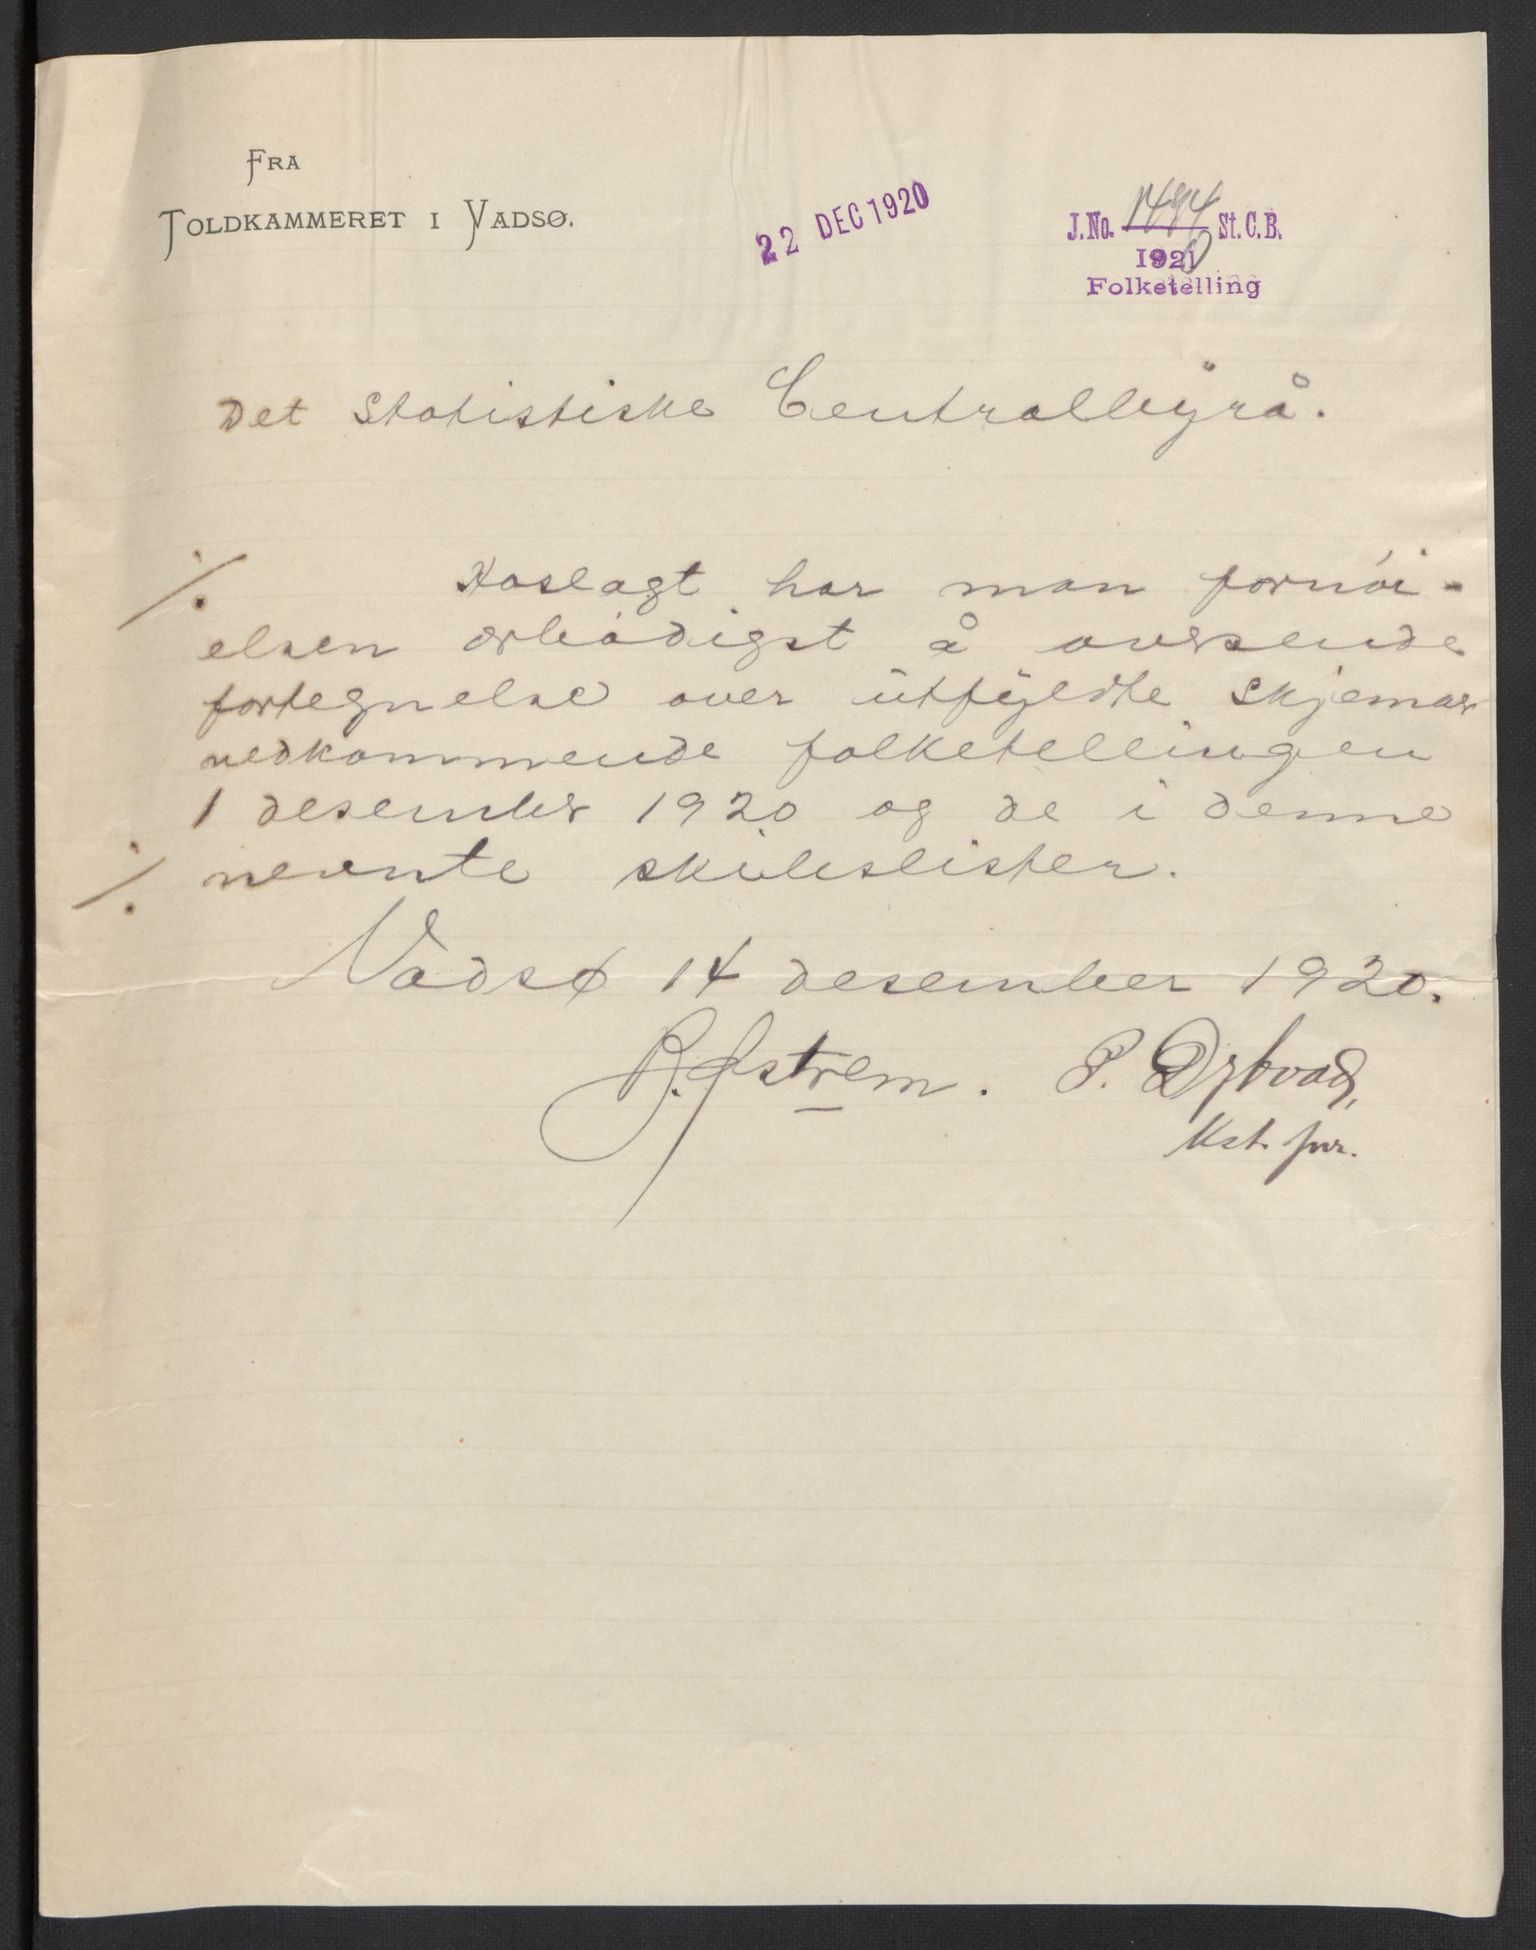 FRA
TOLDKAMMERET I VADSØ.
22 DEC 1920
J.No. 1494 St.C.B.
1920
Folketelling
Det Statistiske Centralbyrå.
Hoslagt har man fornöi-
elsen ærbödigst å oversende
fortegnelse over utfyldte skjemaer
vedkommende folketellingen
1 desember 1920 og de i denne
nevnte skibslister.
Vadsø 14 desember 1920.
P. Dybvad,
kst. fur.